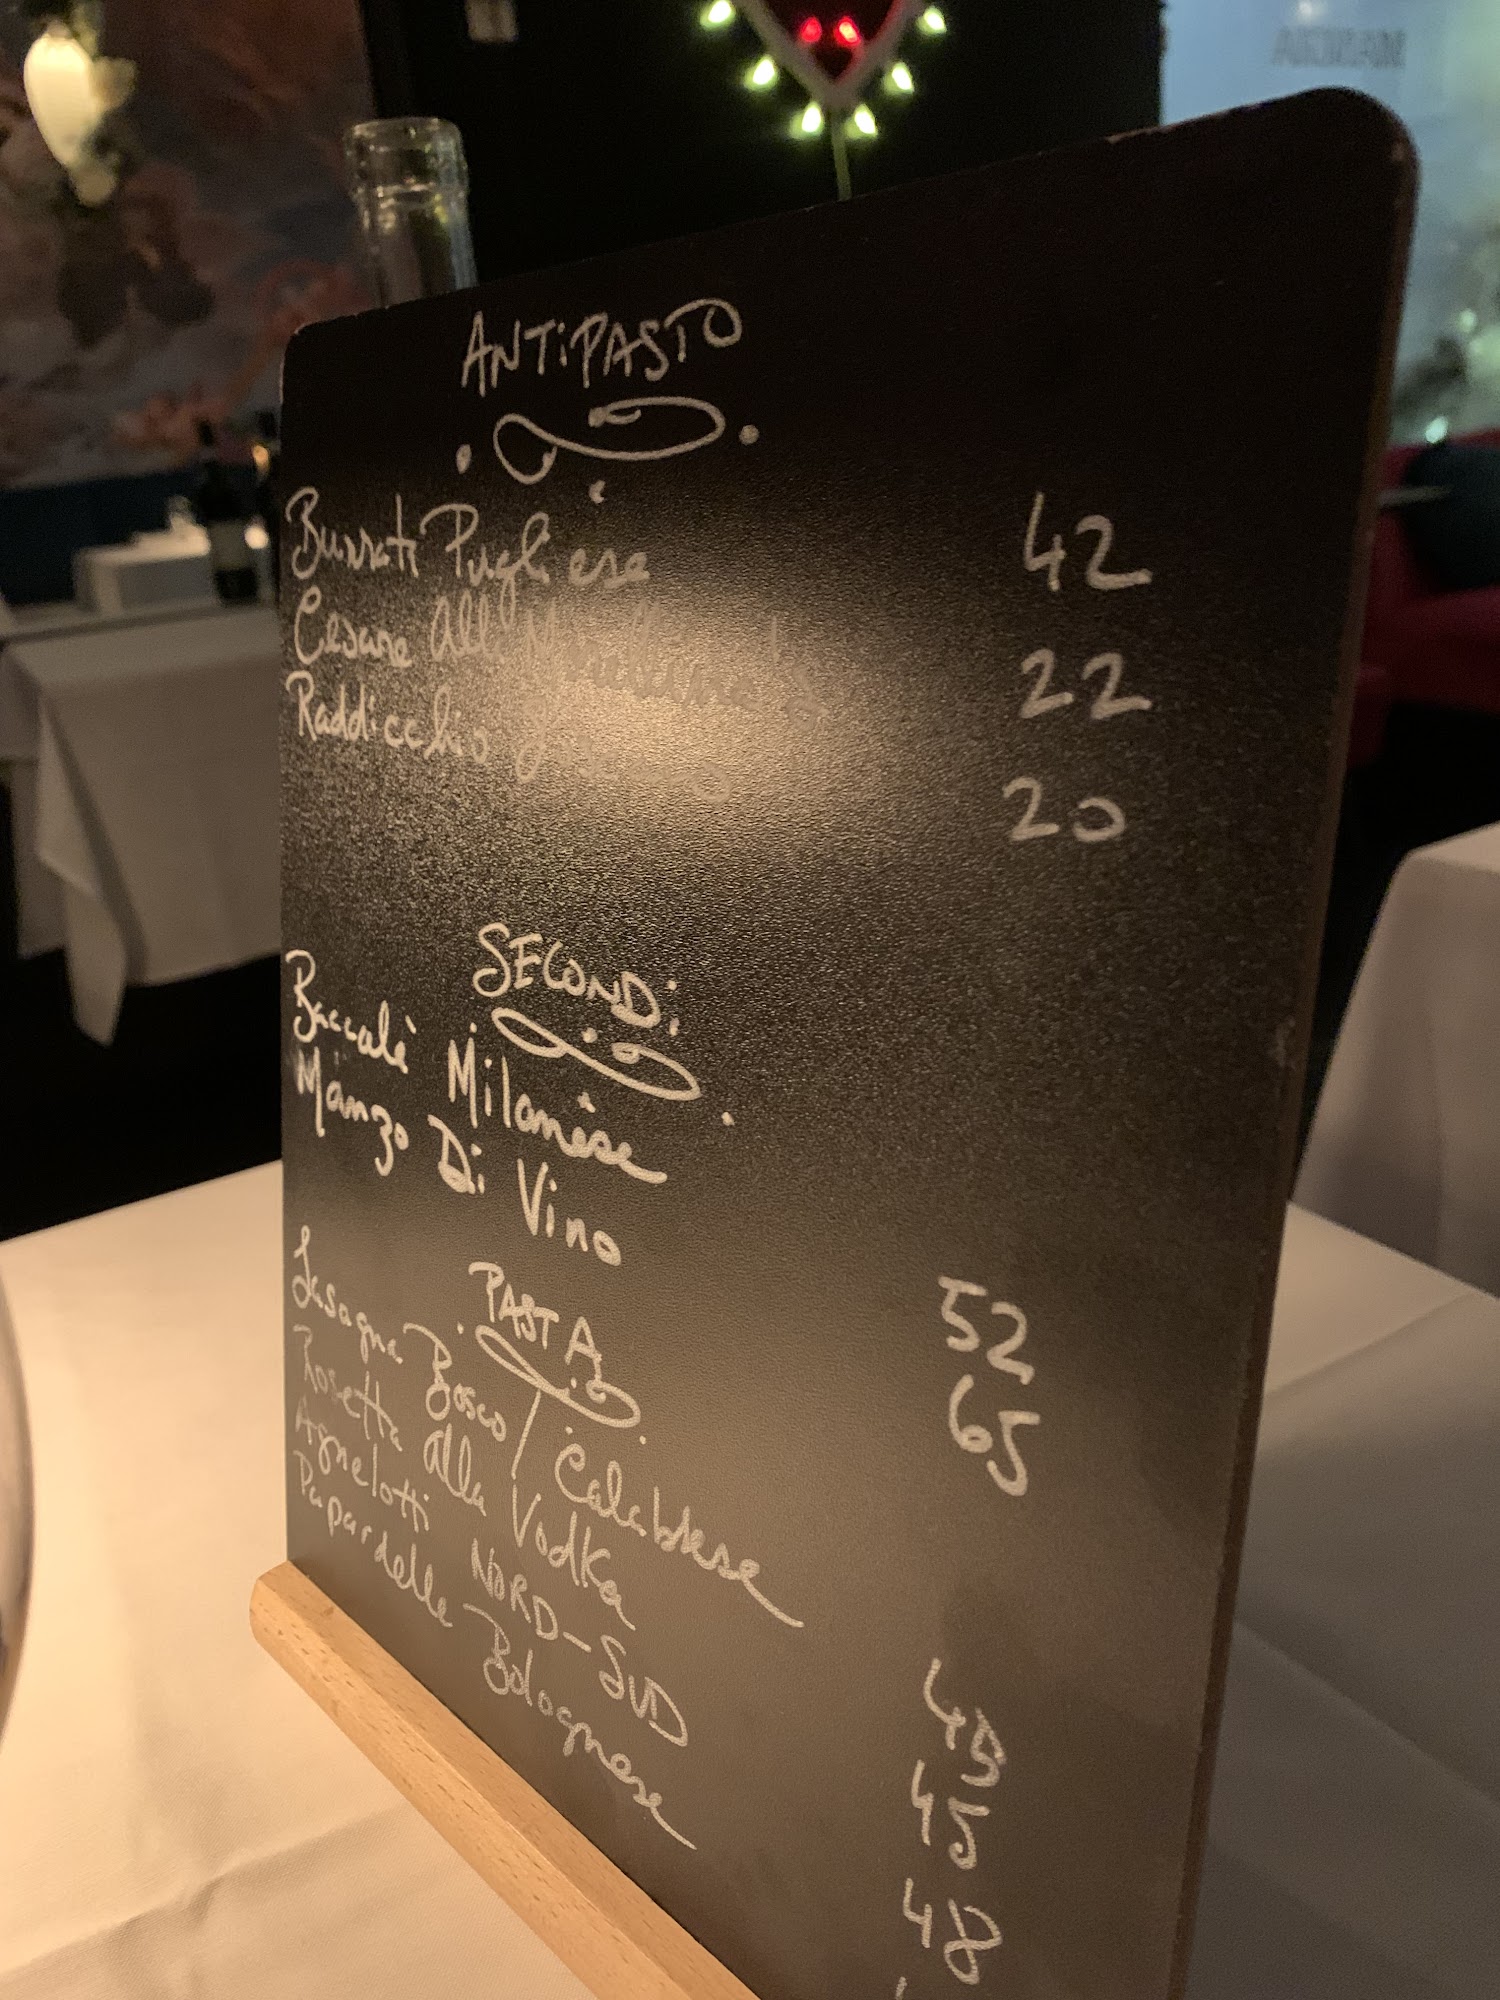 ANTIPASTO
Burrata Pugliese 42
Cesare alla 22
Raddicchio 20
SECONDi
Baccalà Milanese 52
Manzo Di Vino 65
PASTA
Lasagna Bosco / Calabrese 45
Rosetta alla Vodka 45
Agnelotti NORD-SUD 48
Papardelle Bolognese